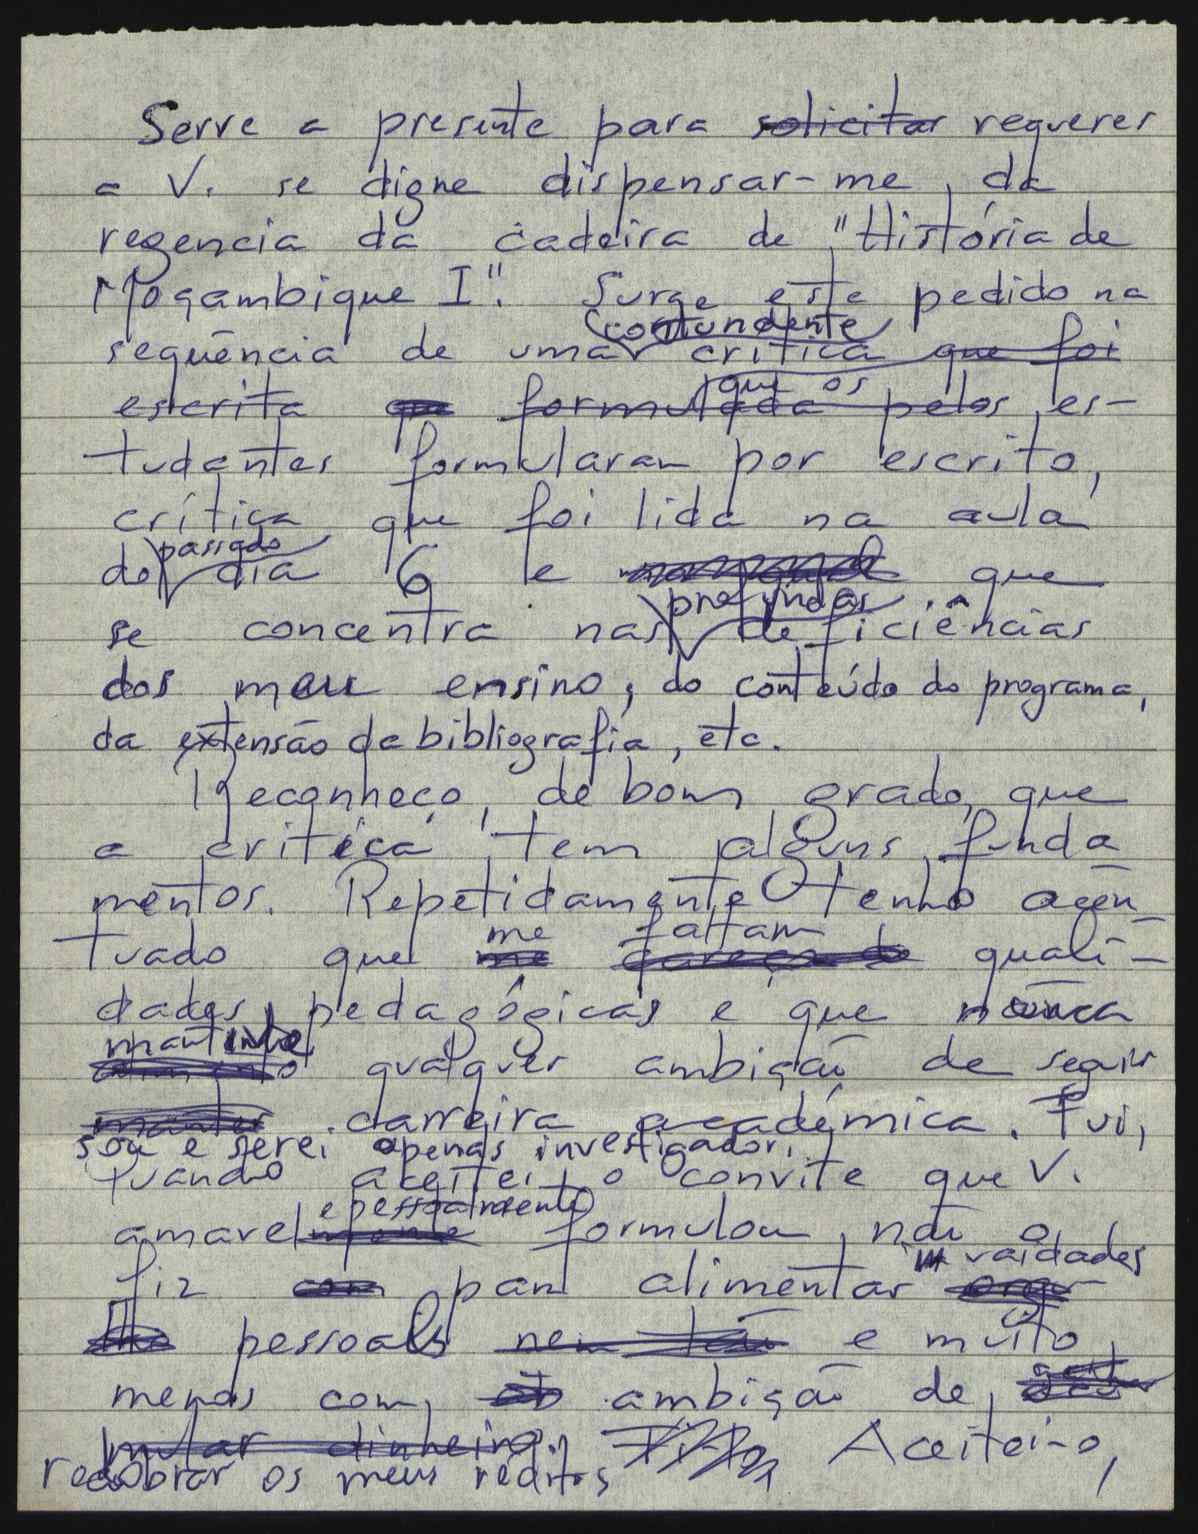 Serve a presente para solicitar requerer
a V. se digne dispensar-me, da
regencia da cadeira de "História de
Moçambique I". Surge este pedido na
contundente
sequência de uma crítica que foi
que os
escrita que formulada pelos es-
tudantes formularam por escrito,
crítica que foi lida na aula
passado
do dia 6 e que
profundas
se concentra nas deficiências
dos meu ensino, do conteúdo do programa,
da extensão da bibliografia, etc.
Reconheço, de bom grado, que
a crítica tem alguns funda
mentos. Repetidamente tenho acen-
me faltam
tuado que me quali-
dades pedagógicas e que nunca
mantive
qualquer ambição de seguir
manter carreira académica. Fui,
sou e serei apenas investigador.
Quando aceitei o convite que V.
e pessoalmente
amavelmente formulou, não o
vaidades
fiz com para alimentar
pessoais nem tão e muito
menos com ambição de
mular dinheiro. Aceitei-o,
redobrar os meus réditos